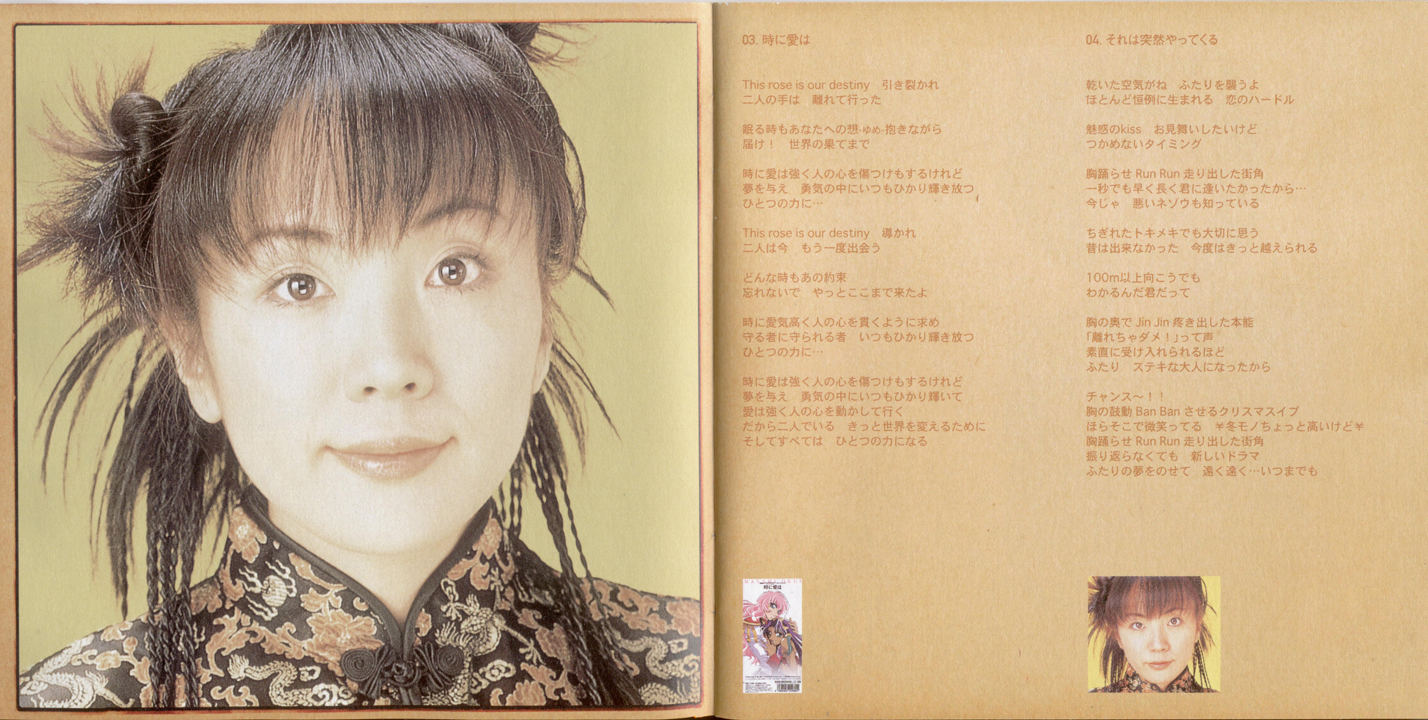 03. 時に愛は
This rose is our destiny　引き裂かれ
二人の手は　離れて行った
眠る時もあなたへの想-ゆめ-抱きながら
届け！　世界の果てまで
時に愛は強く人の心を傷つけもするけれど
夢を与え　勇気の中にいつもひかり輝き放つ
ひとつの力に…
This rose is our destiny　導かれ
二人は今　もう一度出会う
どんな時もあの約束
忘れないで　やっとここまで来たよ
時に愛気高く人の心を貫くように求め
守る者に守られる者　いつもひかり輝き放つ
ひとつの力に…
時に愛は強く人の心を傷つけもするけれど
夢を与え　勇気の中にいつもひかり輝いて
愛は強く人の心を動かして行く
だから二人でいる　きっと世界を変えるために
そしてすべては　ひとつの力になる
時に愛は
04. それは突然やってくる
乾いた空気がね　ふたりを襲うよ
ほとんど恒例に生まれる　恋のハードル
魅惑のkiss　お見舞いしたいけど
つかめないタイミング
胸踊らせ Run Run 走り出した街角
一秒でも早く長く君に逢いたかったから…
今じゃ　悪いネゾウも知っている
ちぎれたトキメキでも大切に思う
昔は出来なかった　今度はきっと越えられる
100m以上向こうでも
わかるんだ君だって
胸の奥で Jin Jin 疼き出した本能
「離れちゃダメ！」って声
素直に受け入れられるほど
ふたり　ステキな大人になったから
チャンス〜！！
胸の鼓動 Ban Ban させるクリスマスイブ
ほらそこで微笑ってる　￥冬モノちょっと高いけど￥
胸踊らせ Run Run 走り出した街角
振り返らなくても　新しいドラマ
ふたりの夢をのせて　遠く遠く…いつまでも